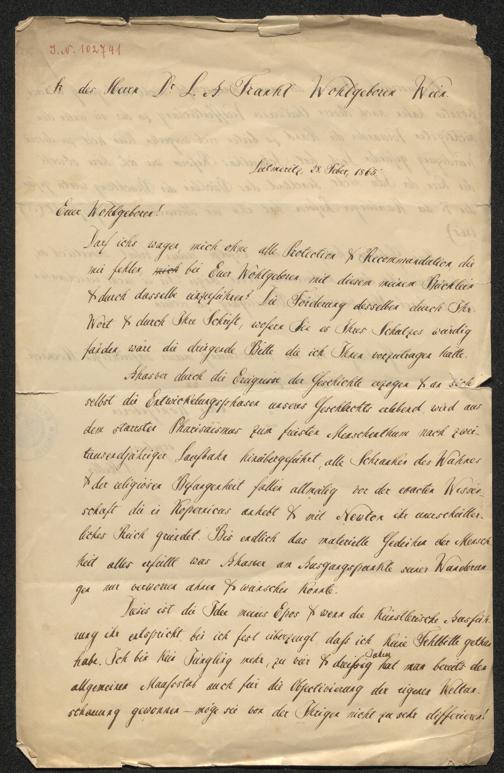 J.N. 102741
An den Herrn Dr L. A Frankl Wohlgeboren Wien
Leitmeritz, 28. Feber, 1865
Euer Wohlgeboren!
Darf ichs wagen mich ohne alle Protection & Recommandation, die
mir fehlen, mich bei Euer Wohlgeboren mit diesem meinen Büchlein
& durch dasselbe einzuführen! Die Förderung desselben durch Ihr
Wort & durch Ihre Schrift, wofern Sie es Ihres Schutzes würdig
fänden, wäre die dringende Bitte die ich Ihnen vorzutragen hätte.
Ahasver durch die Ereignisse der Geschichte erzogen & an sich
selbst die Entwickelungsphasen unseres Geschlechts erlebend wird aus
dem starrsten Pharisäismus zum freisten Menschenthum nach zwei-
tausendjähriger Laufbahn hinübergeführt, alle Schranken des Wahnes
& der religiösen Befangenheit fallen allmälig vor der exacten Wissen-
schaft die in Kopernicus anhebt & mit Newton ihr unerschütter-
liches Reich gründet. Bis endlich das materielle Gedeihen der Mensch-
heit alles erfüllt was Ahasver am Ausgangspunkte seiner Wanderun-
gen nur verworren ahnen & wünschen konnte.
Dieses ist die Idee meines Epos & wenn die künstlerische Ausfüh-
rung ihr entspricht bin ich fest überzeugt, daß ich keine Fehlbitte gethan
habe. Ich bin kein Jüngling mehr, zu vier & dreißig Jahren hat man bereits den
allgemeinen Maassstab auch für die Objectivierung der eigenen Weltan-
schauung gewonnen – möge sie von der Ihrigen nicht zu sehr differieren!